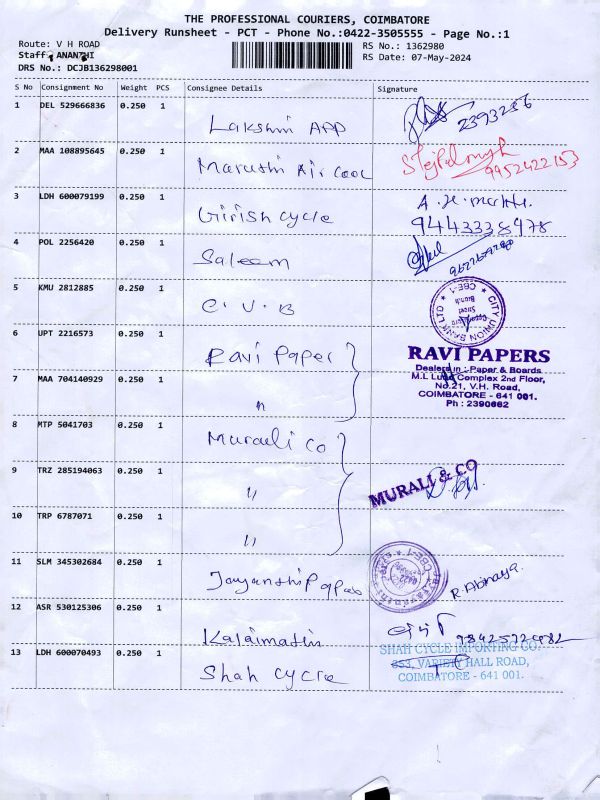 THE PROFESSIONAL COURIERS, COIMBATORE
Delivery Runsheet - PCT - Phone No.:0422-3505555 - Page No.:1
Route: V H ROAD
Staff: ANANTHI
DRS No.: DCJB136298001
RS No.: 1362980
RS Date: 07-May-2024
S No Consignment No Weight PCS Consignee Details Signature
1 DEL 529666836 0.250 1
Lakshmi APP 2393286
2 MAA 108895645 0.250 1
Maruthi Air Cool 9952422153
3 LDH 600079199 0.250 1
Girish cycle
9443338978
4 POL 2256420 0.250 1
Saleem
5 KMU 2812885 0.250 1
C.V.B
CITY UNION BANK LTD
CBE-1
6 UPT 2216573 0.250 1
Ravi Paper
RAVI PAPERS
Dealers in : Paper & Boards
M.L Complex 2nd Floor,
No.21, V.H. Road,
COIMBATORE - 641 001.
Ph : 2390662
7 MAA 704140929 0.250 1
"
8 MTP 5041703 0.250 1
Murali Co
9 TRZ 285194063 0.250 1
"
MURALI & CO
10 TRP 6787071 0.250 1
"
11 SLM 345302684 0.250 1
Jayanthi Papers R. Abinaya.
12 ASR 530125306 0.250 1
Kalaimathi
13 LDH 600070493 0.250 1
Shah cycle
SHAH CYCLE IMPORTING CO.
853, VARIETY HALL ROAD,
COIMBATORE - 641 001.